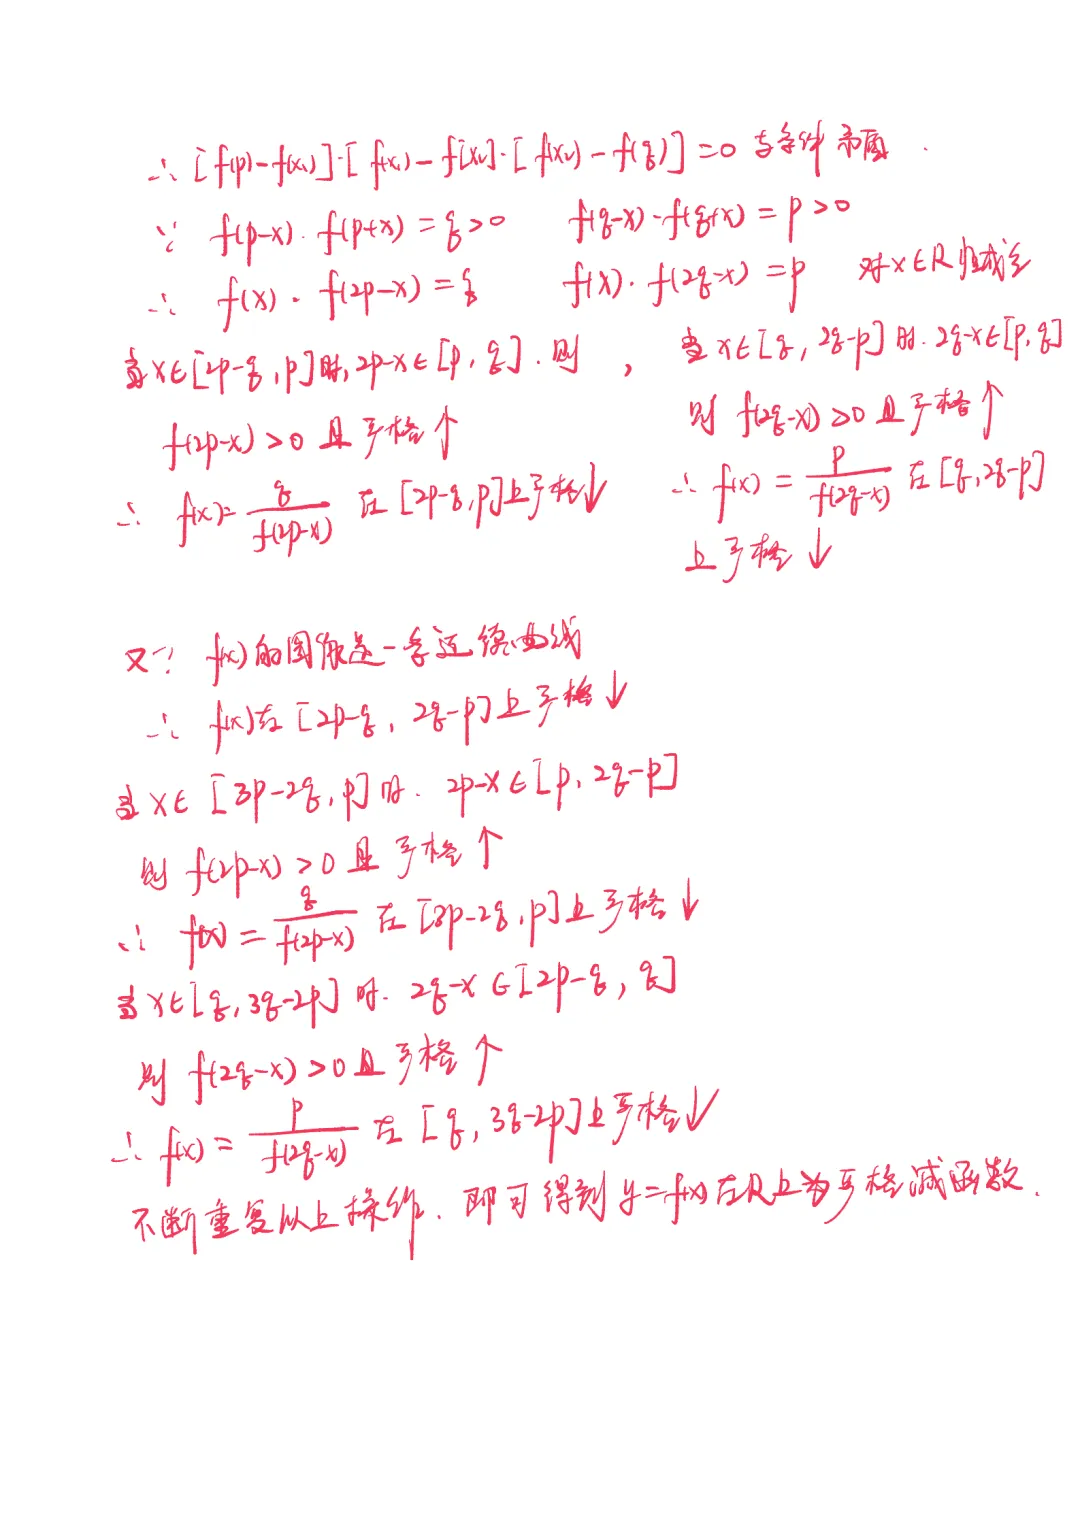 ∴ [f(p)-f(x₁)]·[f(x₁)-f(x₂]·[f(x₂)-f(q)] =0 与条件矛盾.
∵ f(p-x)·f(p+x)=q>0 f(q-x)·f(q+x)=p>0
∴ f(x)·f(2p-x)=q f(x)·f(2q-x)=p 对x∈R恒成立
当x∈[2p-q,p]时,2p-x∈[p,q].则, 当x∈[q,2q-p]时.2q-x∈[p,q]
f(2p-x)>0且严格↑ 则 f(2q-x)>0且严格↑
∴ f(x)=q/f(2p-x) 在[2p-q,p]上严格↓ ∴ f(x)=p/f(2q-x) 在[q,2q-p]
上严格↓
又∵ f(x)的图像是一条连续曲线
∴ f(x)在[2p-q, 2q-p]上严格↓
当x∈[3p-2q,p]时. 2p-x∈[p,2q-p]
则 f(2p-x)>0且严格↑
∴ f(x)=q/f(2p-x) 在[3p-2q,p]上严格↓
当x∈[q,3q-2p]时. 2q-x∈[2p-q,q]
则 f(2q-x)>0且严格↑
∴ f(x)=p/f(2q-x) 在[q,3q-2p]上严格↓
不断重复以上操作.即可得到y=f(x)在R上为严格减函数.